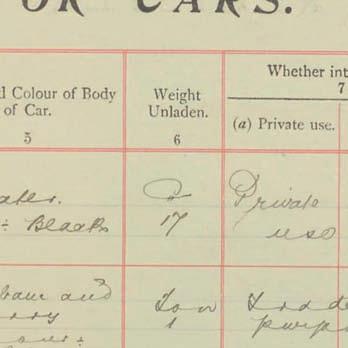 OR CARS.
d Colour of Body
of Car.
5
Weight
Unladen.
6
Whether int
7
(a) Private use.
Black
17
Private
use
and
Ton
1